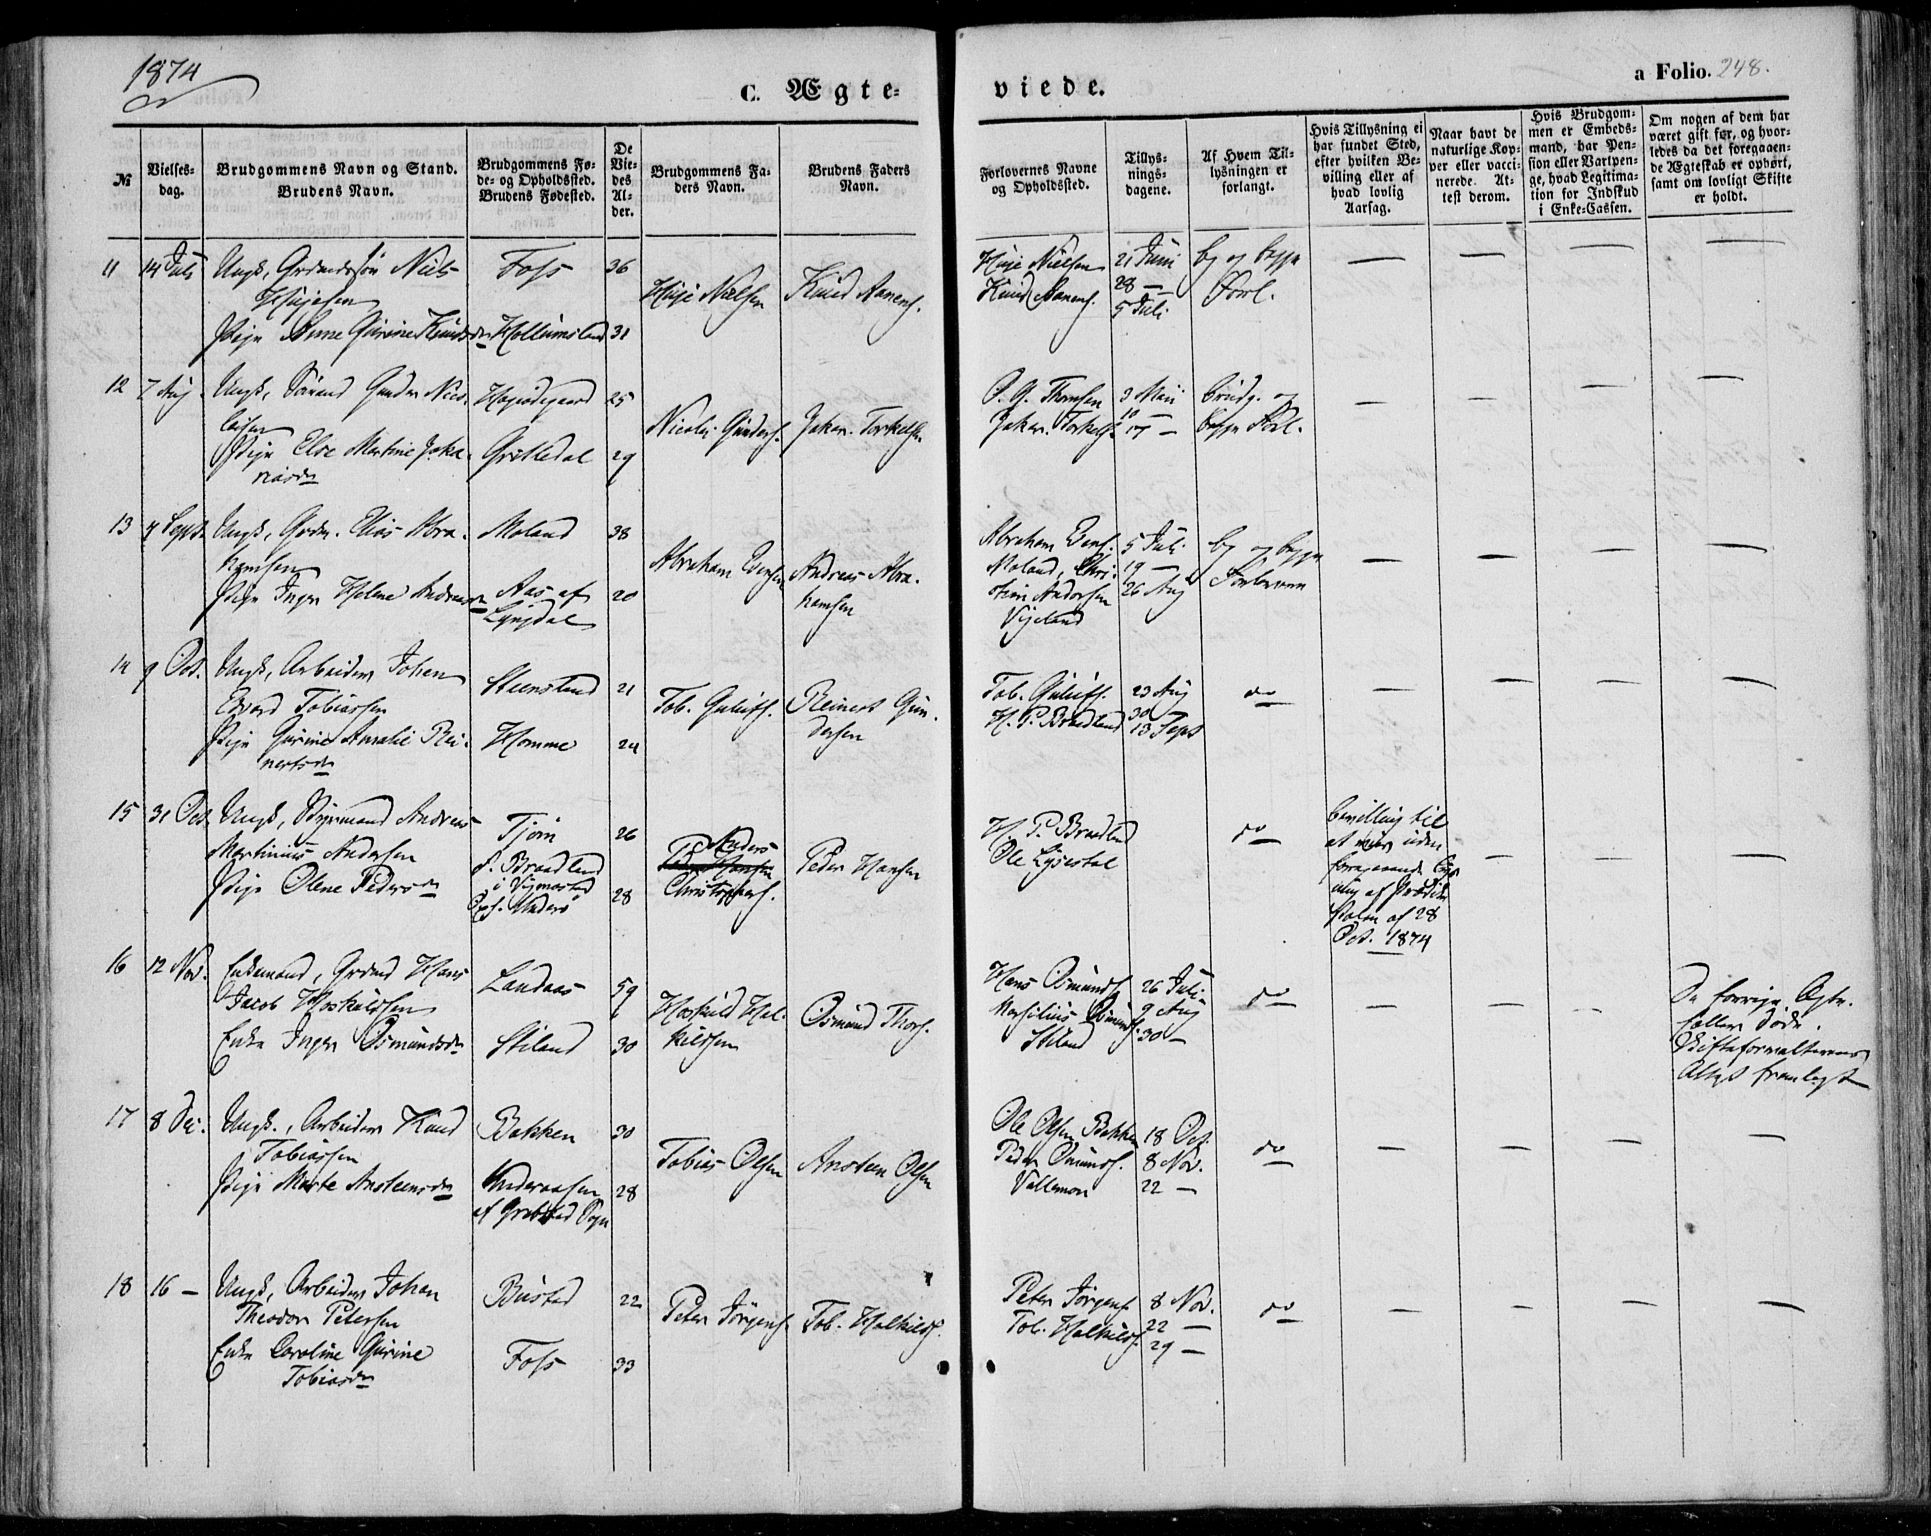 1874
C. Ægte-
viede.
a Folio. 248.
№
Vielses-
dag.
Brudgommens Navn og Stand.
Brudens Navn.
Brudgommens Fø-
de- og Opholdssted.
Brudens Fødested.
De
Vie-
des
Al-
der.
Brudgommens Fa-
ders Navn.
Brudens Faders
Navn.
Forlovernes Navne
og Opholdssted.
Tillys-
nings-
dagene.
Af Hvem Til-
lysningen er
forlangt.
Hvis Tillysning ei
har fundet Sted,
efter hvilken Be-
villing eller af
hvad lovlig
Aarsag.
Naar havt de
naturlige Kop-
per eller vacci-
nerede. At-
test derom.
Hvis Brudgom-
men er Embeds-
mand, har Pen-
sion eller Vartpen-
ge, hvad Legitima-
tion for Indskud
i Enke-Cassen.
Om nogen af dem har
været gift før, og hvor-
ledes da det foregaaen-
de Ægteskab er ophørt,
samt om lovligt Skifte
er holdt.
11 14 Juli Ungk, Grdmdssøn Niels
Hujesen
Pige Anne Gurine Knudsdr
Foss 36
Hollumsland 31
Huje Nielsen
Knud Aanens.
Huje Nielsen
Knud Aanens.
21 Juni
28 —
5 Juli
bg og begge
Forl.
— — — —
12 7 Aug. Ungk, Sørend Gunder Nico-
laisen
Pige Else Martine Joka-
niasdr
Høgsdegaard 25
Grikedal 29
Nicolai Gunders.
Jokan. Torkelsen
O. G. Thomsen
Jokan. Torkels.
3 Mai
10 —
17 —
brudg. og
begge Forl.
— — — —
13 4 Sept. Ungk, Grdm. Elias Abra-
hamsen
Pige Inger Helene Andreasdr
Moland 38
Aas af
Lyngdal 20
Abraham Bensen
Andreas Abra-
hamsen
Abraham Bens.
Moland, Chri-
stian Andersen
Vigeland
5 Juli
19 —
26 Aug
bg og begge
Forlovere
— — — —
14 9 Oct. Ungk, Arbeider Johan
Edvard Tobiassen
Pige Gurine Amalie Rei-
nertsdr
Steensland 21
Homme 24
Tob. Gulufs.
Reinert Gun-
dersen
Tob. Gulufs.
H. P. Braadland
23 Aug
30
13 Sept
do
— — — —
15 31 Oct. Ungk, Styrmand Andreas
Martinius Andersen
Pige Olene Pedersdr
Tjøm 26
f. Braadland
i Vigmostad
Oph. Underø 28
Anders
Peder Hansen
Christophers.
Peder Hansen
H. P. Braadland
Ole Lysestøl
do
bevilling til
at vies uden
foregaaende Lys-
ning af Prædike-
stolen af 28
Oct. 1874
— — —
16 12 Nov. Enkemand, Grdmd Hans
Jacob Hoskuldsen
Enke Inger Osmundsdr
Landaas 59
Stiland 30
Hoskuld Hal-
kildsen
Osmund Thors.
Hans Osmunds.
Marsilius Osmunds.
Stiland
26 Juli
9 Aug
30 —
do
— — —
De forrige Ægte-
fæller døde.
Skifteforvalterens
Attest fremlagt
17 8 Dec. Ungk., Arbeider Knud
Tobiassen
Pige Marte Ansteensdr
Bakken 30
Underaasen
af Grebstad Sogn 28
Tobias Olsen
Ansteen Olsen
Ole Olsen Bakken
Peder Omunds.
Vallemon
18 Oct.
8 Nov.
22 —
do
— — — —
18 16 — Ungk, Arbeider Johan
Theodor Petersen
Enke Caroline Gurine
Tobiasdr
Bustad 22
Foss 33
Peter Jörgens.
Tob. Halkilds.
Peter Jörgens.
Tob. Halkilds.
8 Nov.
22 —
29 —
do
— — — —